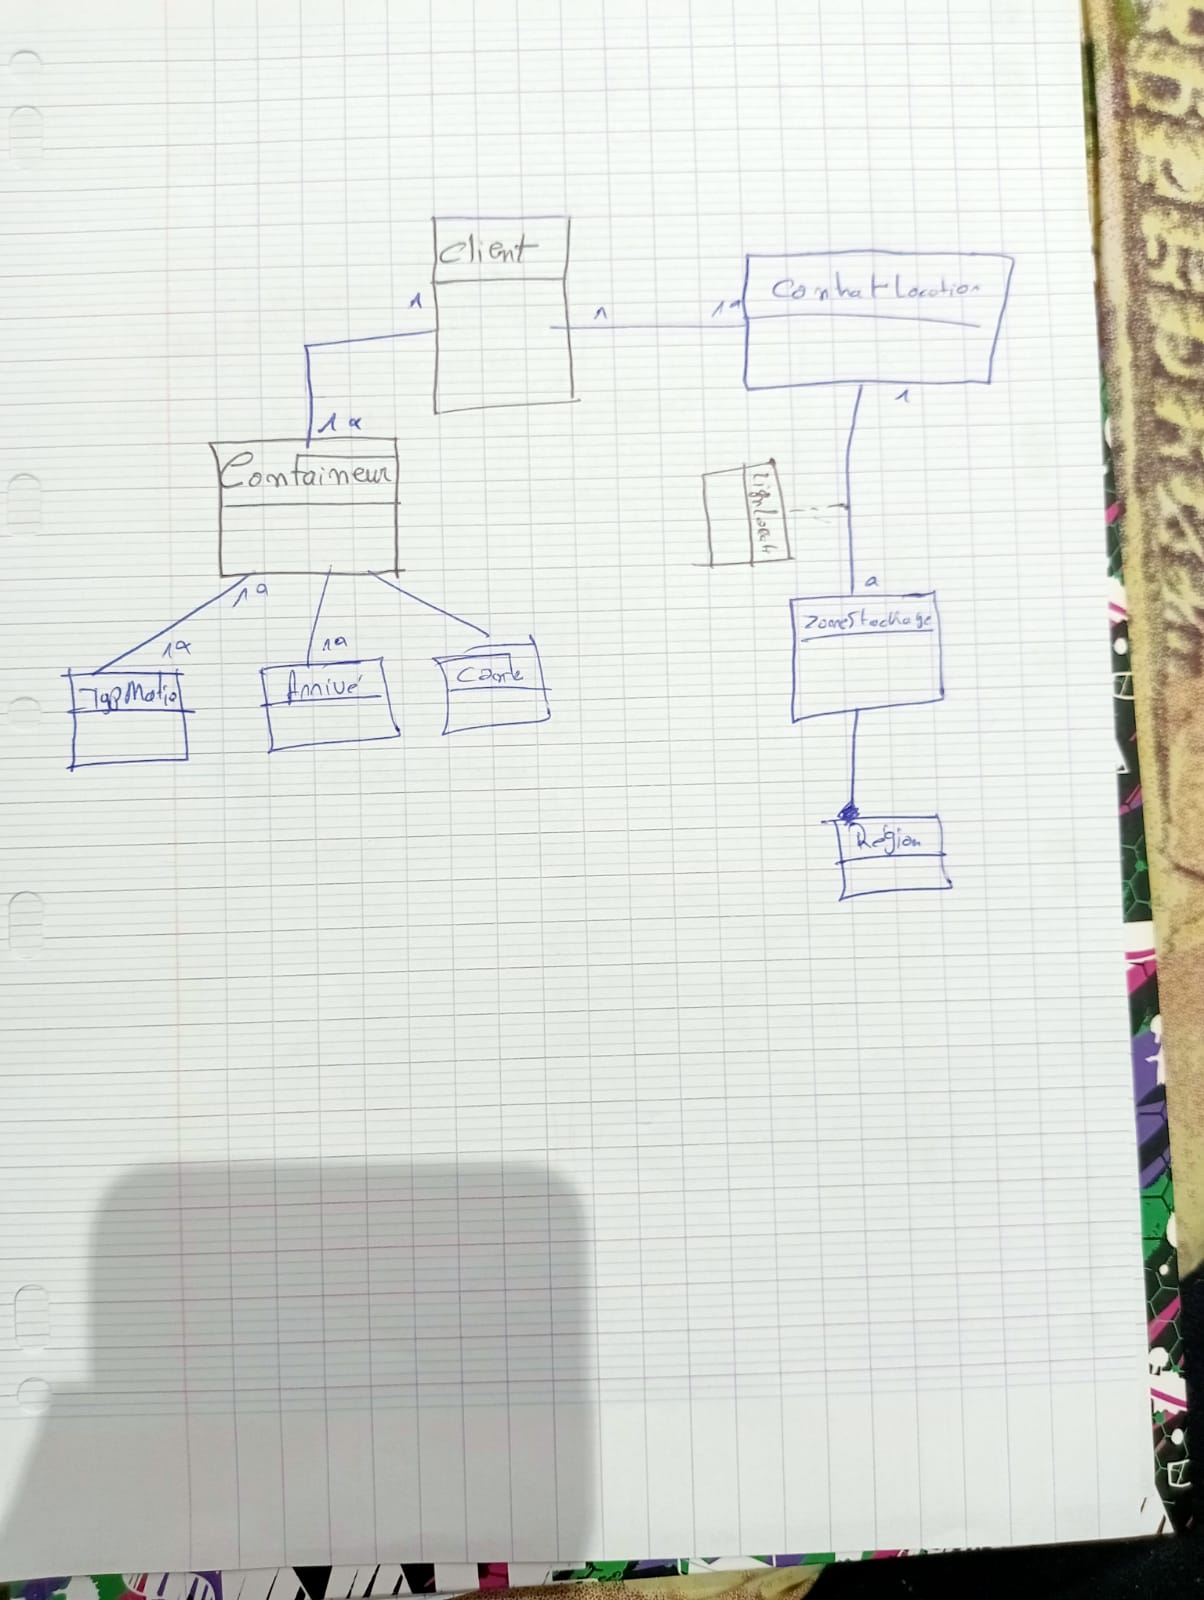 Client
1
1
1a
ContratLocation
1
1a
Containeur
LignLocat
a
ZoneStockage
1a
1a
1a
TypMatie
Arrivé
Carte
Région